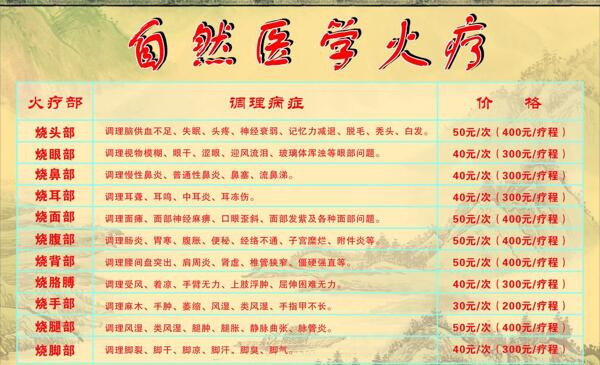 自然医学火疗
火疗部 调理病症 价 格
烧头部 调理脑供血不足、失眠、头疼、神经衰弱、记忆力减退、脱毛、秃头、白发。 50元/次（400元/疗程）
烧眼部 调理视物模糊、眼干、涩眼、迎风流泪、玻璃体浑浊等眼部问题。 40元/次（300元/疗程）
烧鼻部 调理慢性鼻炎、普通性鼻炎、鼻塞、流鼻涕。 40元/次（300元/疗程）
烧耳部 调理耳聋、耳鸣、中耳炎、耳冻伤。 40元/次（300元/疗程）
烧面部 调理面瘫、面部神经麻痹、口眼歪斜、面部发紫及各种面部问题。 50元/次（400元/疗程）
烧腹部 调理肠炎、胃寒、腹胀、便秘、经络不通、子宫糜烂、附件炎等。 50元/次（400元/疗程）
烧背部 调理腰间盘突出、肩周炎、肾虚、椎管狭窄、僵硬强直等。 50元/次（400元/疗程）
烧胳膊 调理受风、着凉、手臂无力、上肢浮肿、屈伸困难无力。 40元/次（300元/疗程）
烧手部 调理麻木、手肿、萎缩、风湿、类风湿、手指甲不长。 30元/次（200元/疗程）
烧腿部 调理风湿、类风湿、腿肿、腿胀、静脉曲张、脉管炎。 50元/次（400元/疗程）
烧脚部 调理脚裂、脚干、脚凉、脚汗、脚臭、脚气。 40元/次（300元/疗程）